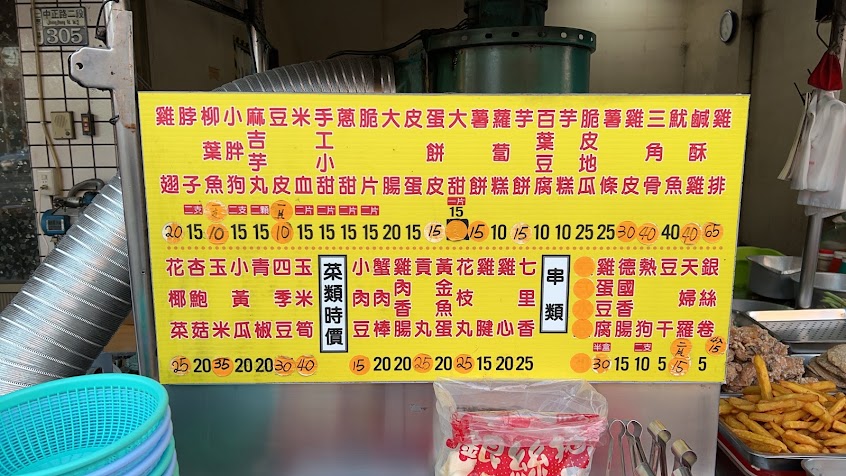 中正路二段
305
雞翅 20
脖子 15
柳葉魚 二支 10
小胖狗 15
麻吉芋丸 二支 15
豆皮 二顆 10
米血 15
手工小甜 一片 15
蔥甜 一片 15
脆片 二片 15
大腸 20
皮蛋 15
蛋餅皮 15
大甜 一片 15
薯餅 15
蘿蔔糕 10
芋餅 15
百葉豆腐 10
芋糕 10
脆皮地瓜 25
薯條 25
雞皮 30
三角骨 40
魷魚 40
鹹酥雞 40
雞排 65
花椰菜 25
杏鮑菇 20
玉米 35
小黃瓜 20
青椒 20
四季豆 30
玉米筍 40
菜類時價
小肉豆 15
蟹肉棒 20
雞肉香腸 20
貢丸 25
黃金魚蛋 20
花枝丸 25
雞腱 15
雞心 20
七里香 25
串類
雞蛋豆腐 半盒 30
德國香腸 15
熱狗 二支 10
豆干 5
天婦羅 15
銀絲卷 5
銀絲